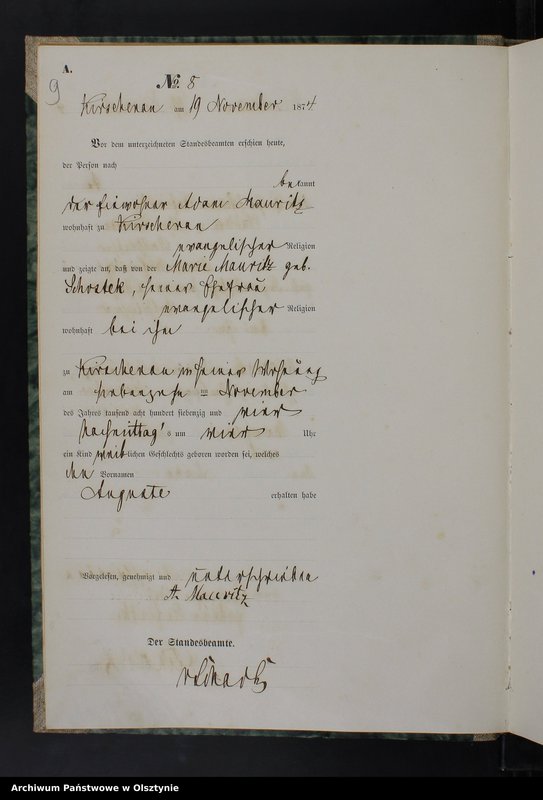 A.
9
No. 8
Kirschenau am 19 November 1874
Vor dem unterzeichneten Standesbeamten erschien heute,
der Person nach
bekannt
der Einwohner Adam Mauritz
wohnhaft zu Kirschenau
evangelischer Religion
und zeigte an, daß von der Marie Mauritz geb.
Schostek, seiner Ehefrau
evangelischer Religion
wohnhaft bei ihm
zu Kirschenau in seiner Wohnung
am siebenzehn November
des Jahres tausend acht hundert siebenzig und vier
Nachmittag's um vier Uhr
ein Kind weiblichen Geschlechts geboren worden sei, welches
den Vornamen
Auguste erhalten habe
Vorgelesen, genehmigt und unterschrieben
A. Mauritz
Der Standesbeamte.
Archiwum Państwowe w Olsztynie